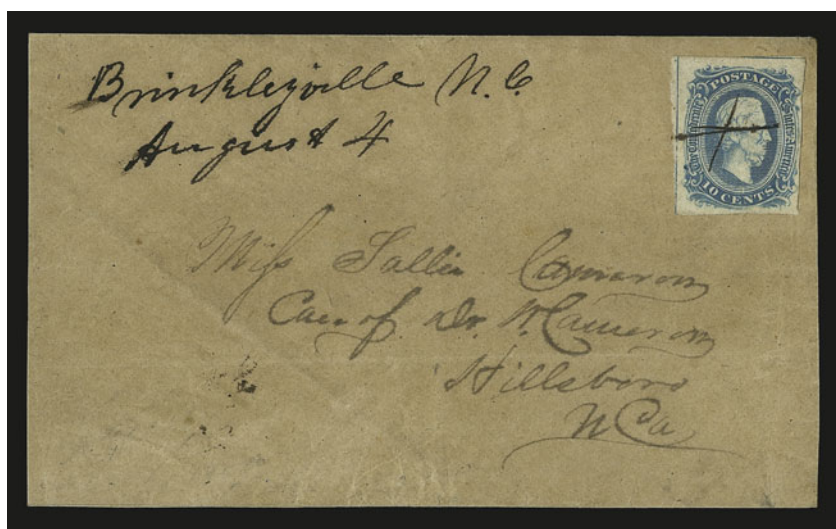 Brinkleyville N.C.
August 4
POSTAGE
The Confederate States of America
10 CENTS
Miss Sallie Cameron
Care of Dr. W. Cameron
Hillsboro
N Ca